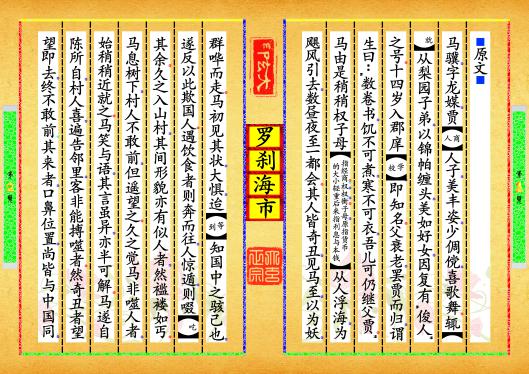 ■原文■
马骥字龙媒贾【商人】人子美丰姿少倜傥喜歌舞辄
【就】从梨园子弟以锦帕缠头美如好女因复有俊人
之号十四岁入郡庠【学校】即知名父衰老罢贾而归谓
生曰：数卷书饥不可煮寒不可衣吾儿可仍继父贾
马由是稍稍权子母【指经商权权衡子母原指货币的大小轻重后来指利息与本钱】从人浮海为
飓风引去数昼夜至一都会其人皆奇丑见马至以为妖
罗刹海市
群哗而走马初见其状大惧迨【等到】知国中之骇己也
遂反以此欺国人遇饮食者则奔而往人惊遁则啜【吃】
其余久之入山村其间形貌亦有似人者然褴褛如丐
马息树下村人不敢前但遥望之久之觉马非噬人者
始稍稍近就之马笑与语其言虽异亦半可解马遂自
陈所自村人喜遍告邻里客非能搏噬者然奇丑者望
望即去终不敢前其来者口鼻位置尚皆与中国同